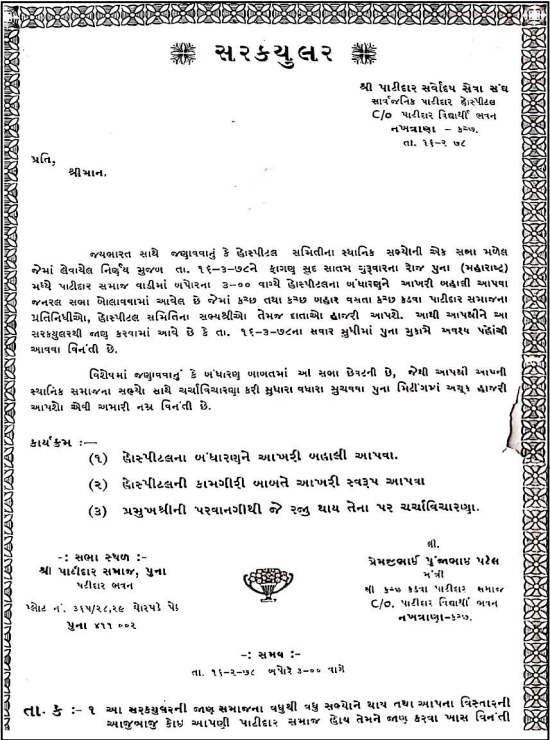 સરકયુલર
શ્રી પાટીદાર સર્વોદય સેવા સંઘ
સાર્વજનિક પાટીદાર હોસ્પીટલ
C/o પાટીદાર વિદ્યાર્થી ભવન
નખત્રાણા - કચ્છ.
તા. ૧૬-૨ ૭૮
પ્રતિ,
શ્રીમાન.
જયભારત સાથે જણાવવાનું કે હોસ્પીટલ સમિતીના સ્થાનિક સભ્યોની એક સભા મળેલ
જેમાં લેવાયેલ નિર્ણય મુજબ તા. ૧૬-૩-૭૮ને ફાગણ સૂદ સાતમ ગુરૂવારના રોજ પુના (મહારાષ્ટ્ર)
મધ્યે પાટીદાર સમાજ વાડીમાં બપોરના ૩-૦૦ વાગ્યે હોસ્પીટલના બંધારણને આખરી બહાલી આપવા
જનરલ સભા બોલાવવામાં આવેલ છે જેમાં કચ્છ તથા કચ્છ બહાર વસતા કચ્છ કડવા પાટીદાર સમાજના
પ્રતિનિધીઓ, હોસ્પિટલ સમિતિના સભ્યશ્રીઓ તેમજ દાતાઓ હાજરી આપશે. આથી આપશ્રીને આ
સરક્યુલરથી જાણ કરવામાં આવે છે કે તા. ૧૬-૩-૭૮ના સવાર સુધીમાં પુના મુકામે અવશ્ય પહોંચી
આવવા વિનંતી છે.
વિશેષમાં જણાવવાનું કે બંધારણ બાબતમાં આ સભા છેવટની છે, જેથી આપશ્રી આપની
સ્થાનિક સમાજના સભ્યો સાથે ચર્ચાવિચારણા કરી સુધારા વધારા સુચવવા પુના મિટીંગમાં અચૂક હાજરી
આપશો એવી અમારી નમ્ર વિનંતી છે.
કાર્યક્રમ :—
(૧) હોસ્પીટલના બંધારણને આખરી બહાલી આપવા.
(૨) હોસ્પીટલની કામગીરી બાબતે આખરી સ્વરૂપ આપવા
(૩) પ્રમુખશ્રીની પરવાનગીથી જે રજી થાય તેના પર ચર્ચાવિચારણા.
-: સભા સ્થળ :-
શ્રી પાટીદાર સમાજ, પુના
પટીદાર ભવન
પ્લોટ નં. ૩૬૫/૨૮,૨૯ ઘોરપડે પેઠ
પુના ૪૧૧ ૦૦૨
લી.
પ્રેમજીભાઈ પુંજાભાઇ પટેલ
મંત્રી
શ્રી કચ્છ કડવા પાટીદાર સમાજ
C/o. પાટીદાર વિદ્યાર્થી ભવન
નખત્રાણા-કચ્છ.
-: સમય :-
તા. ૧૬-૨-૭૮ બપોરે ૩-૦૦ વાગે
તા. ક :- ૧ આ સરક્યુલરની જાણ સમાજના વધુથી વધુ સભ્યોને થાય તથા આપના વિસ્તારની
આજુબાજુ કોઇ આપણી પાટીદાર સમાજ હોય તેમને જાણ કરવા ખાસ વિનંતી